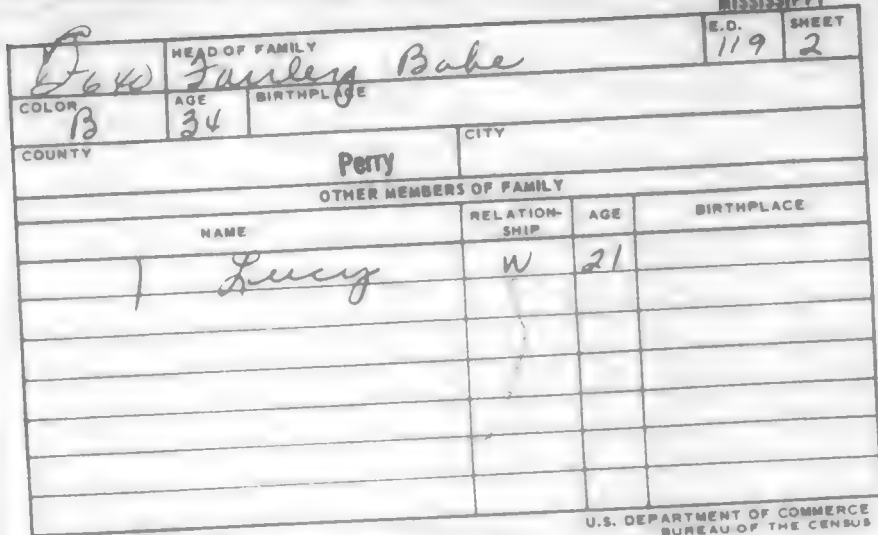 MISSISSIPPI
HEAD OF FAMILY
E.D.
SHEET
F 640 Fairley Babe 119 2
COLOR AGE BIRTHPLACE
B 34
COUNTY Perry CITY
OTHER MEMBERS OF FAMILY
NAME RELATION-SHIP AGE BIRTHPLACE
1 Lucy W 21
U.S. DEPARTMENT OF COMMERCE
BUREAU OF THE CENSUS